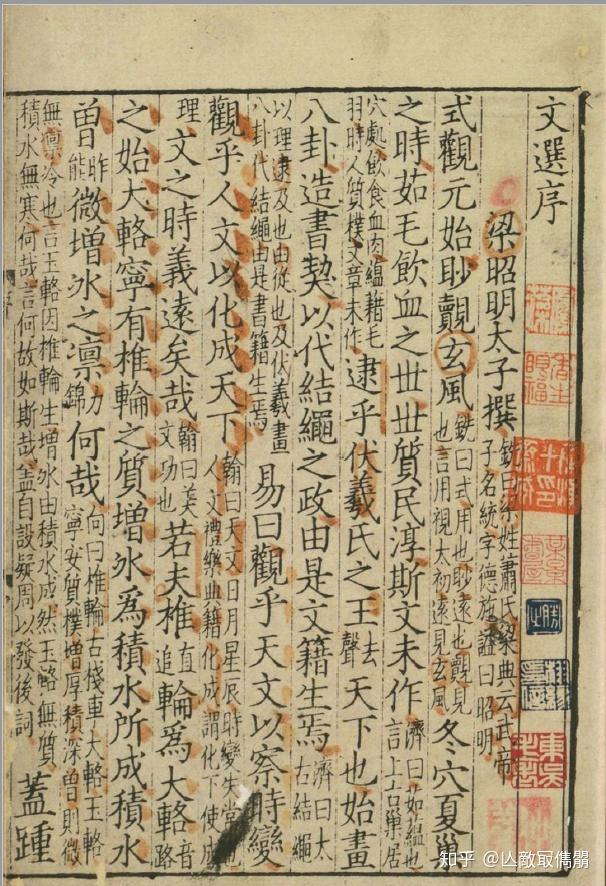 文選序
梁昭明太子撰銑曰梁姓蕭氏梁典云武帝子名統字德施謚曰昭明
式觀元始眇覿玄風銑曰式用也眇遠也覿見也言用視太初遠見玄風冬穴夏巢
之時茹毛飲血之世世質民淳斯文未作濟曰茹緼也言上古巢居
穴處飲食血肉緼藉毛羽時人質樸文章未作逮乎伏羲氏之王去聲天下也始畫
八卦造書契以代結繩之政由是文籍生焉濟曰太古結繩
以理逮及也由從也及伏羲畫八卦代結繩由是書籍生焉易曰觀乎天文以察時變
觀乎人文以化成天下翰曰天文日月星辰時變失常人文禮樂典籍化成謂化下使成
理文之時義遠矣哉翰曰美文功也若夫椎直追輪爲大輅音路
之始大輅寧有椎輪之質增冰爲積水所成積水
曾昨能微增冰之凛力錦何哉向曰椎輪古棧車大輅玉輅寧安質樸增厚積深曾則微
無凛冷也言玉輅因椎輪生增冰由積水成然玉輅無質積水無寒何哉言何故如斯哉蓋自設疑周以發後詞蓋踵
知乎